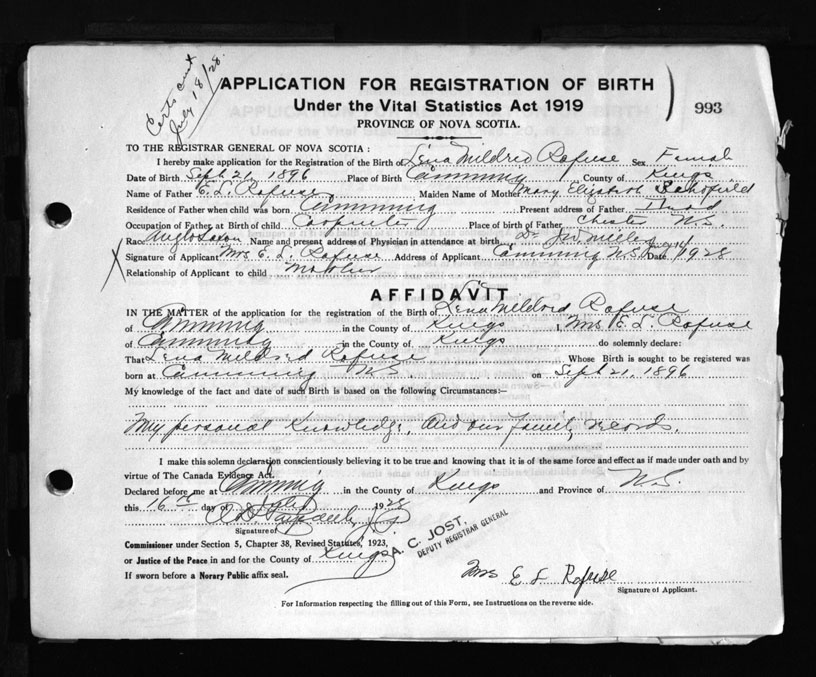 Certs sent
July 18/28.
APPLICATION FOR REGISTRATION OF BIRTH
Under the Vital Statistics Act 1919
PROVINCE OF NOVA SCOTIA.
993
TO THE REGISTRAR GENERAL OF NOVA SCOTIA :
I hereby make application for the Registration of the Birth of Lena Mildred Rafuse Sex Female
Date of Birth Sept 21, 1896 Place of Birth Canning County of Kings
Name of Father E. L. Rafuse Maiden Name of Mother Mary Elizabeth Schofield
Residence of Father when child was born Canning Present address of Father Dead
Occupation of Father at Birth of child Carpenter Place of birth of Father Chester N.S.
Race Anglo Saxon Name and present address of Physician in attendance at birth Dr. Miller
Signature of Applicant Mrs E. L. Rafuse Address of Applicant Canning N.S. Date 1928
Relationship of Applicant to child Mother
AFFIDAVIT
IN THE MATTER of the application for the registration of the Birth of Lena Mildred Rafuse
of Canning in the County of Kings I, Mrs. E. L. Rafuse
of Canning in the County of Kings do solemnly declare:
That Lena Mildred Rafuse Whose Birth is sought to be registered was
born at Canning N.S. on Sept 21, 1896
My knowledge of the fact and date of such Birth is based on the following Circumstances:—
My personal Knowledge, and our Family records.
I make this solemn declaration conscientiously believing it to be true and knowing that it is of the same force and effect as if made under oath and by
virtue of The Canada Evidence Act.
Declared before me at Canning in the County of Kings and Province of N.S.
this 16th day of July 1928
Signature of
Commissioner under Section 5, Chapter 38, Revised Statutes, 1923,
or Justice of the Peace in and for the County of Kings
A. C. JOST.
DEPUTY REGISTRAR GENERAL
If sworn before a Norary Public affix seal.
Mrs E L Rafuse
Signature of Applicant.
For Information respecting the filling out of this Form, see Instructions on the reverse side.